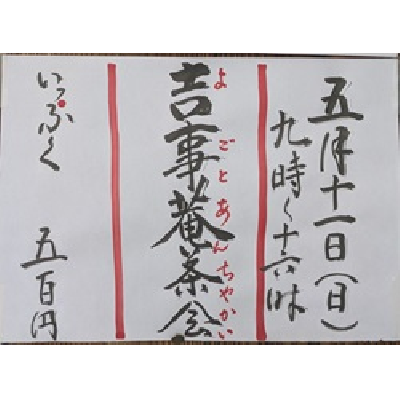 五月十一日(日)
九時〜十六時
吉事菴茶会
よごとあんちゃかい
いっぷく 五百円